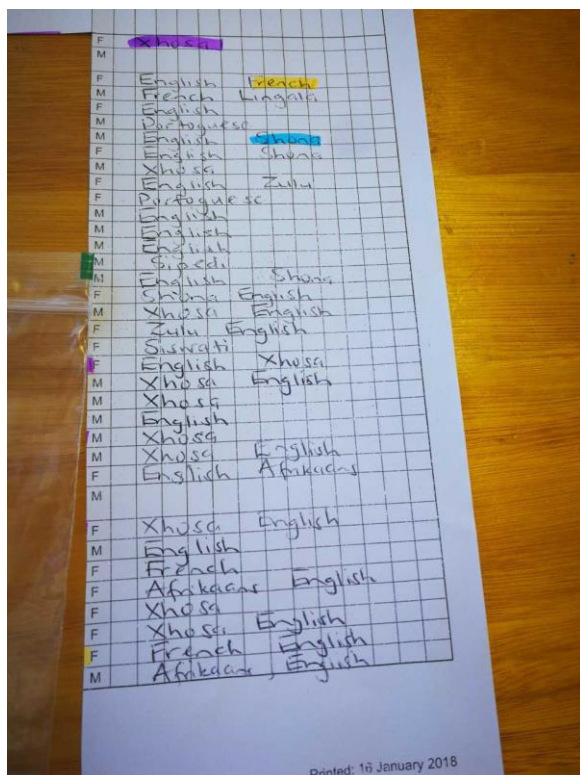 F Xhosa
M
F English French
M French Lingala
F English
M Portoguese
M English Shona
F English Shona
M Xhosa
F English Zulu
F Portoguese
M English
M English
M English
M Sipedi
M English Shona
F Shona English
M Xhosa English
F Zulu English
F Siswati
F English Xhosa
M Xhosa English
M Xhosa
M English
M Xhosa
M Xhosa English
F English Afrikaans
M
F Xhosa English
M English
F French
F Afrikaans English
F Xhosa
F Xhosa English
F French English
M Afrikaans, English
Printed: 16 January 2018